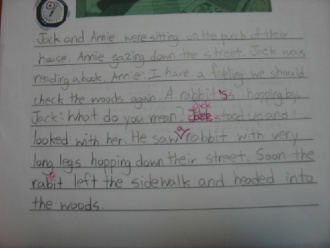 Jack and Annie were sitting on the porch of their
house. Annie gazing down the street. Jack was
reading a book. Annie: I have a feeling we should
check the woods again. A rabbit's hopping by.
Jack: What do you mean? Jack stood up and
looked with her. He saw a rabbit with very
long legs hopping down their street. Soon the
rabit left the sidewalk and headed into
the woods.